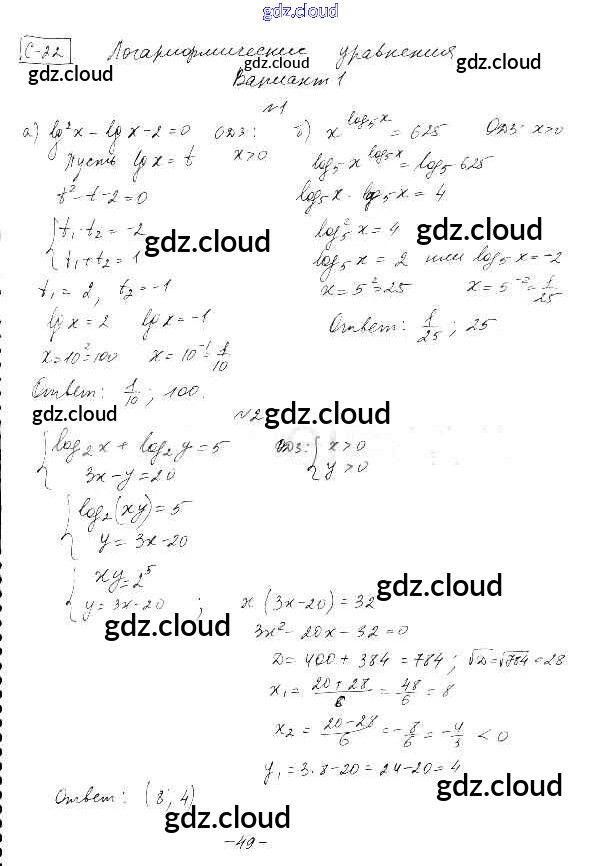 gdz.cloud
С-22 Логарифмические уравнения
gdz.cloud gdz.cloud
Вариант 1
№1
а) lg²x – lg x – 2 = 0 ОДЗ: x>0
gdz.cloud
Пусть lg x = t
t² – t – 2 = 0
{ t₁·t₂ = –2
t₁+t₂ = 1
gdz.cloud
t₁ = 2, t₂ = –1
lg x = 2 lg x = –1
x = 10² = 100 x = 10⁻¹ = 1/10
Ответ: 1/10 ; 100.
gdz.cloud
б) x^(log₅x) = 625 ОДЗ: x>0
gdz.cloud
log₅ x^(log₅x) = log₅ 625
log₅x · log₅x = 4
log₅²x = 4
gdz.cloud
log₅x = 2 или log₅x = –2
x = 5² = 25 x = 5⁻² = 1/25
Ответ: 1/25 ; 25
№2
gdz.cloud
{ log₂x + log₂y = 5 ОДЗ: { x>0
3x – y = 20 y>0
{ log₂(xy) = 5
y = 3x – 20
{ xy = 2⁵
y = 3x – 20 ; x(3x – 20) = 32
gdz.cloud
gdz.cloud
3x² – 20x – 32 = 0
D = 400 + 384 = 784 ; √D = √784 = 28
x₁ = (20+28)/6 = 48/6 = 8
gdz.cloud
x₂ = (20–28)/6 = –8/6 = –4/3 < 0
y₁ = 3·8 – 20 = 24 – 20 = 4
gdz.cloud
Ответ: (8; 4)
gdz.cloud
–49–